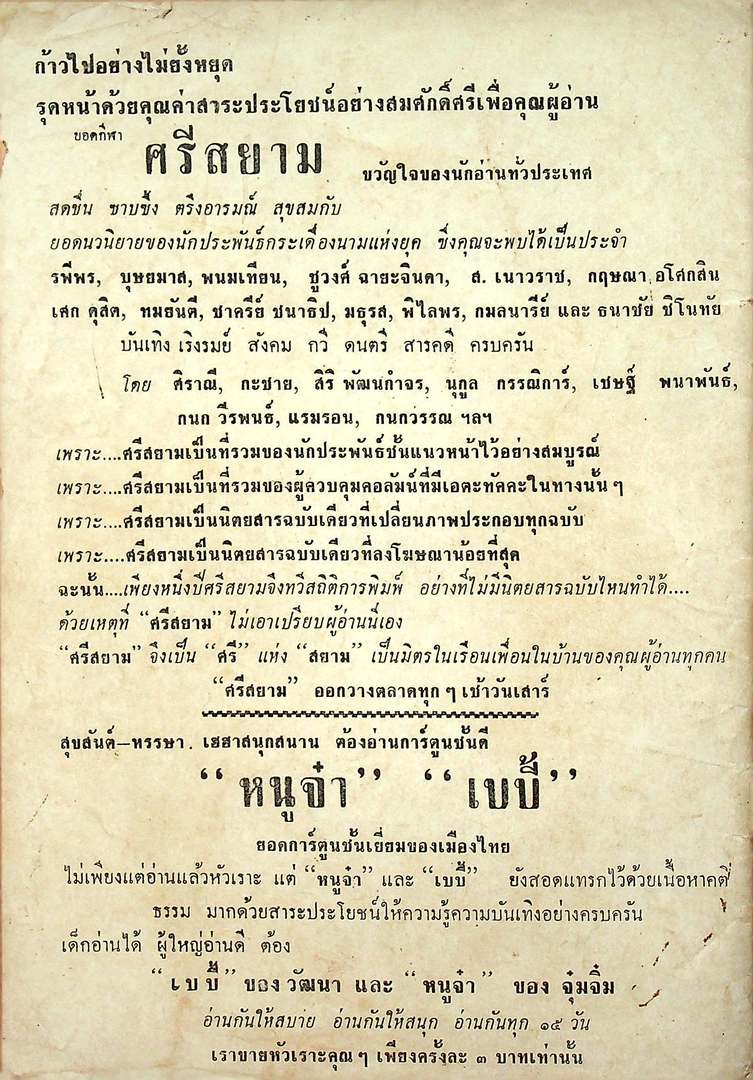 ก้าวไปอย่างไม่ยั้งหยุด
รุดหน้าด้วยคุณค่าสาระประโยชน์อย่างสมศักดิ์ศรีเพื่อคุณผู้อ่าน
ยอดกีฬา
ศรีสยาม ขวัญใจของนักอ่านทั่วประเทศ
สดชื่น ซาบซึ้ง ตรึงอารมณ์ สุขสมกับ
ยอดนวนิยายของนักประพันธ์กระเดื่องนามแห่งยุค ซึ่งคุณจะพบได้เป็นประจำ
รพีพร, บุษยมาส, พนมเทียน, ชูวงศ์ ฉายะจินดา, ส. เนาวราช, กฤษณา อโศกสิน
เศก ดุสิต, ทมยันตี, ชาครีย์ ชนาธิป, มธุรส, พิไลพร, กมลนารีย์ และ ธนาชัย ชิโนทัย
บันเทิง เริงรมย์ สังคม กวี ดนตรี สารคดี ครบครัน
โดย ศิราณี, กะชาย, สิริ พัฒนกำจร, นุกูล กรรณิการ์, เชษฐ์ พนาพันธ์,
กนก วีรพนธ์, แรมรอน, กนกวรรณ ฯลฯ
เพราะ....ศรีสยามเป็นที่รวมของนักประพันธ์ชั้นแนวหน้าไว้อย่างสมบูรณ์
เพราะ....ศรีสยามเป็นที่รวมของผู้ควบคุมคอลัมน์ที่มีเอตะทัคคะในทางนั้น ๆ
เพราะ....ศรีสยามเป็นนิตยสารฉบับเดียวที่เปลี่ยนภาพประกอบทุกฉบับ
เพราะ....ศรีสยามเป็นนิตยสารฉบับเดียวที่ลงโฆษณาน้อยที่สุด
ฉะนั้น....เพียงหนึ่งปีศรีสยามจึงทวีสถิติการพิมพ์ อย่างที่ไม่มีนิตยสารฉบับไหนทำได้....
ด้วยเหตุที่ “ศรีสยาม” ไม่เอาเปรียบผู้อ่านนี่เอง
“ศรีสยาม” จึงเป็น “ศรี” แห่ง “สยาม” เป็นมิตรในเรือนเพื่อนในบ้านของคุณผู้อ่านทุกคน
“ศรีสยาม” ออกวางตลาดทุก ๆ เช้าวันเสาร์
สุขสันต์—หรรษา. เฮฮาสนุกสนาน ต้องอ่านการ์ตูนชั้นดี
“หนูจ๋า” “เบบี้”
ยอดการ์ตูนชั้นเยี่ยมของเมืองไทย
ไม่เพียงแต่อ่านแล้วหัวเราะ แต่ “หนูจ๋า” และ “เบบี้” ยังสอดแทรกไว้ด้วยเนื้อหาคติ
ธรรม มากด้วยสาระประโยชน์ให้ความรู้ความบันเทิงอย่างครบครัน
เด็กอ่านได้ ผู้ใหญ่อ่านดี ต้อง
“เบบี้” ของ วัฒนา และ “หนูจ๋า” ของ จุ๋มจิ๋ม
อ่านกันให้สบาย อ่านกันให้สนุก อ่านกันทุก ๑๕ วัน
เราขายหัวเราะคุณ ๆ เพียงครั้งละ ๓ บาทเท่านั้น